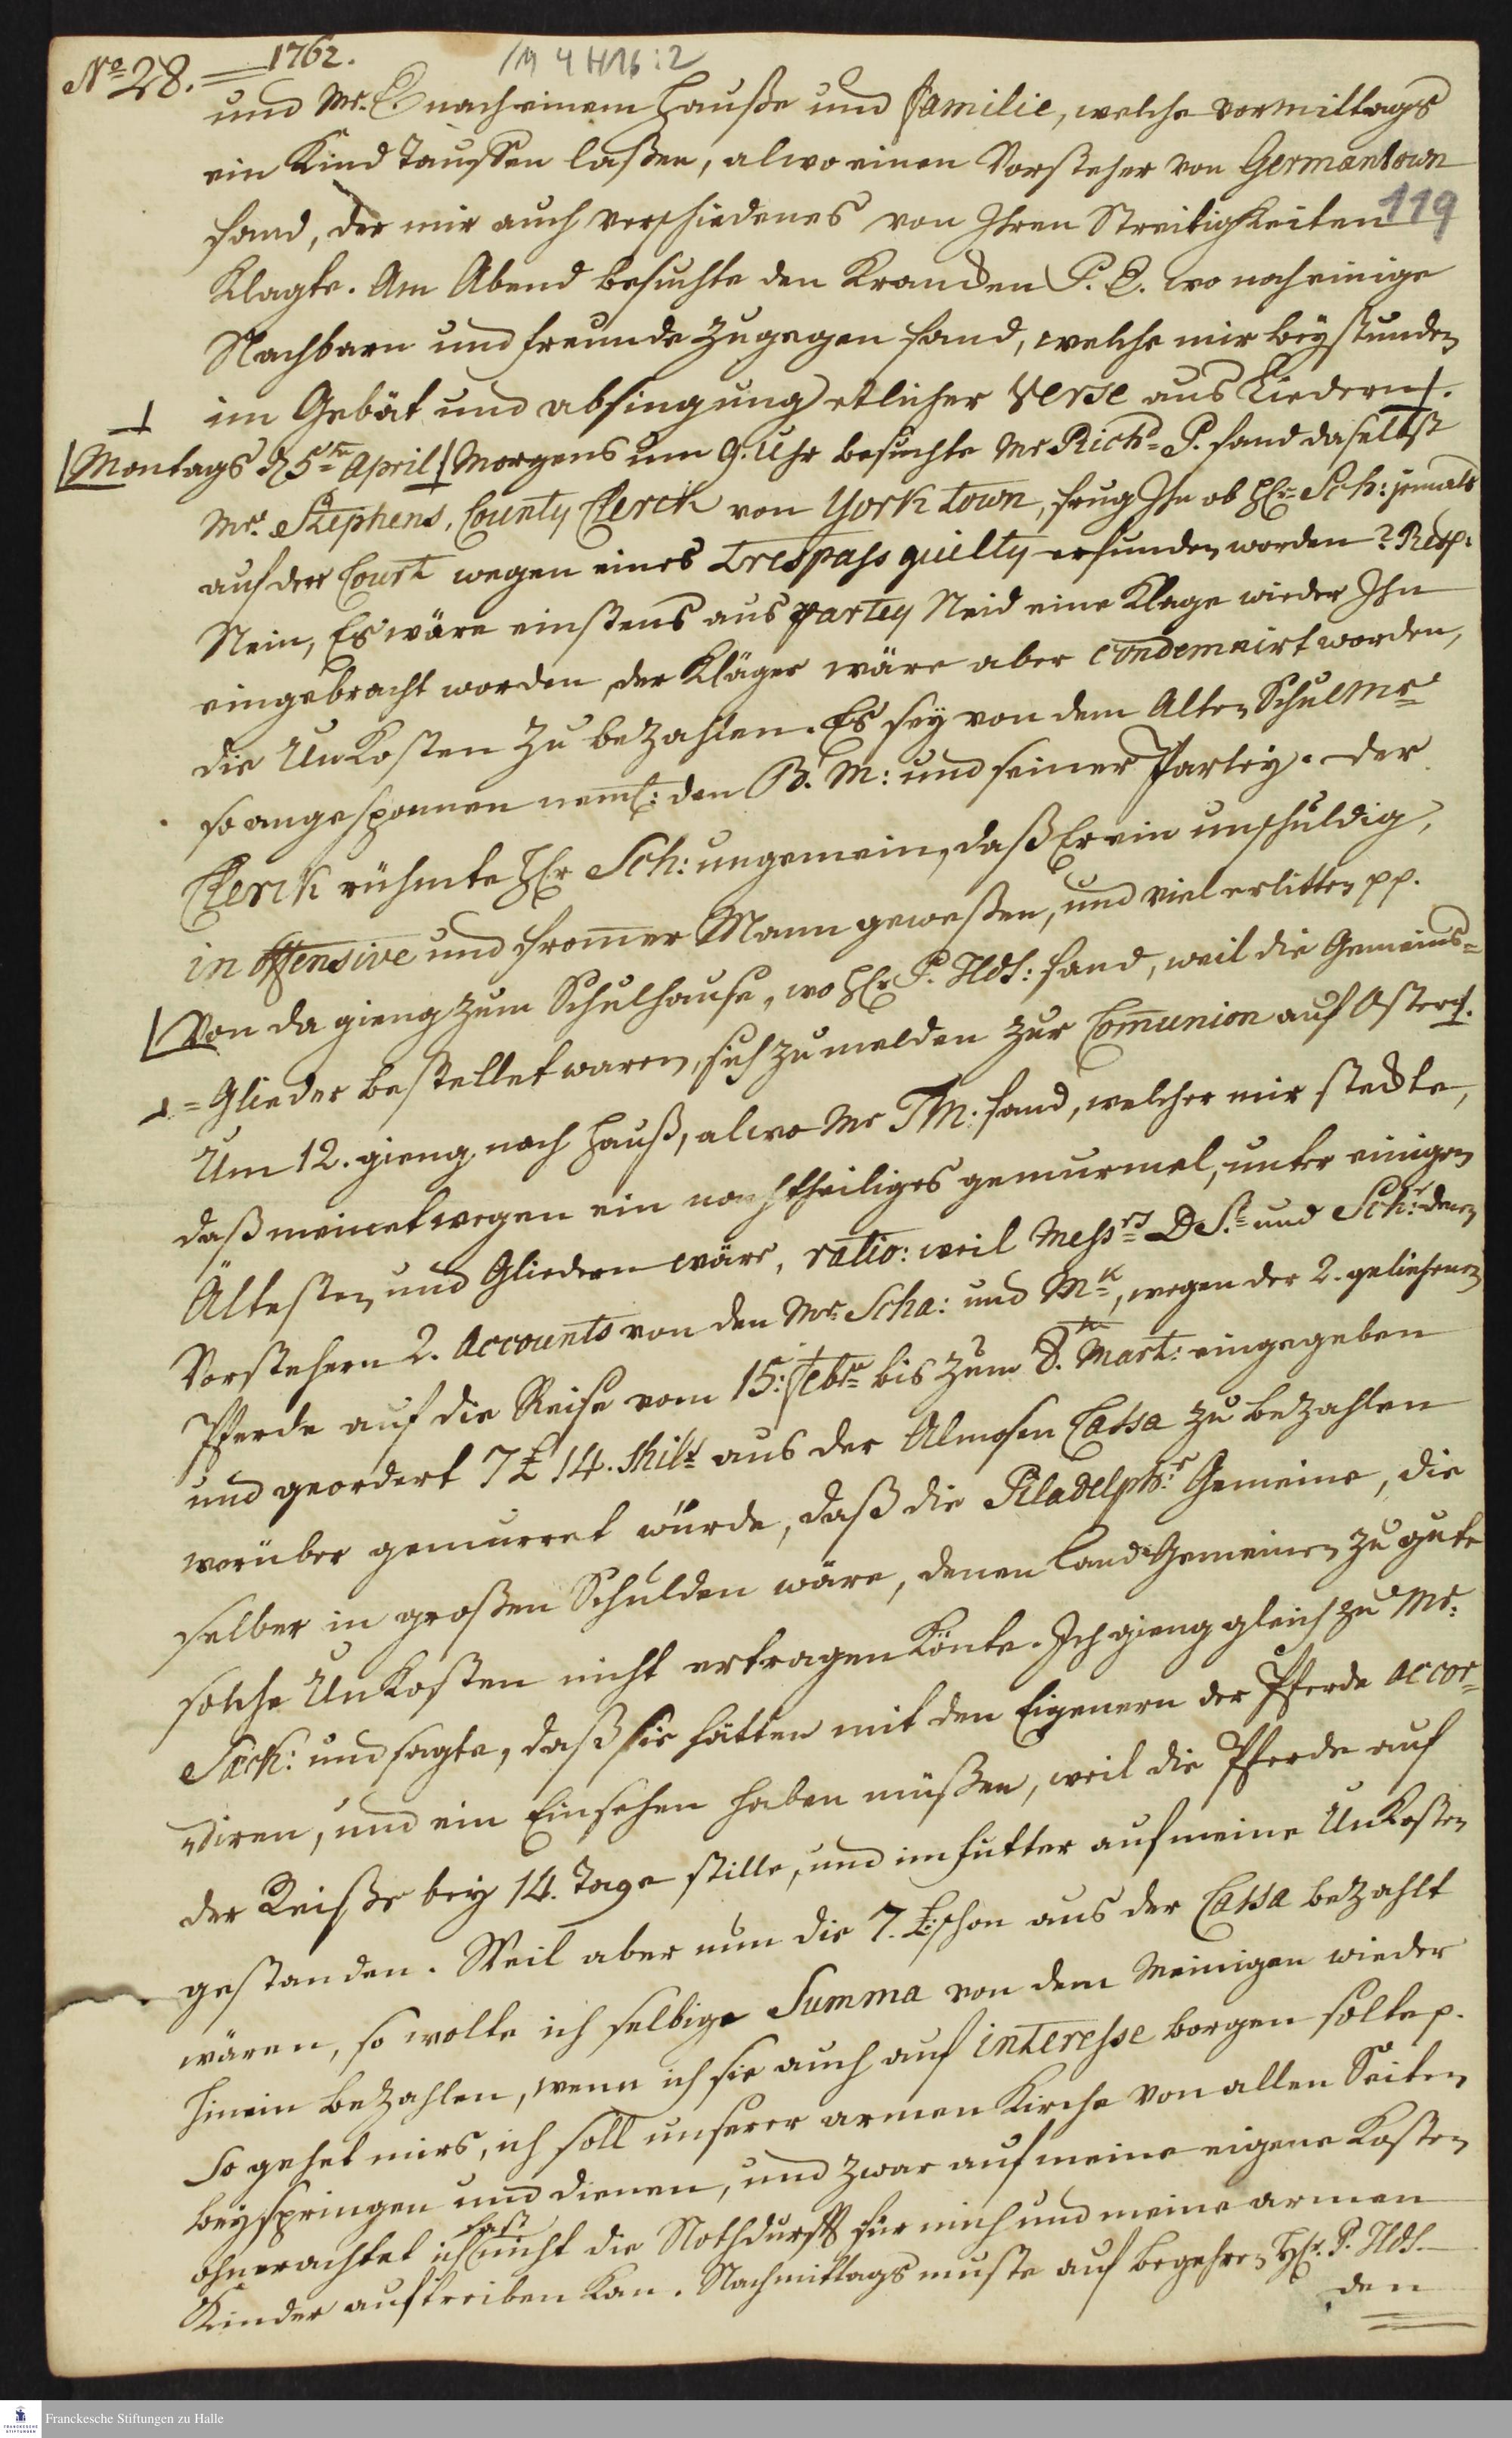 No 28. 1762.
/M 4 H16:2
und Mr. E nach einem Hauße und familie, welche vormittags
ein Kind Tauffen laßen, alwo einen Vorsteher von Germantown
119
fand, der mir auch verschiedenes von Ihren Streitigkeiten
klagte. Am Abend besuchte den Krancken P. E. wo noch einige
Nachbarn und freunde zugegen fand, welche mir beystunden
im Gebät und absingung etlicher Verse aus Liedern.
Montags d 5te April Morgens um 9. Uhr besuchte Mr Rich= P. fand daselbst
Mr. Stephens, County Clerck von York town, frug Ihn ob HEr= Sch: jemals
auf der Court wegen eines trespass guilty erfunden worden? Resp:
Nein, Es wäre einstens aus partey Neid eine Klage wieder Ihn
eingebracht worden, der Kläger wäre aber condemnirt worden,
die UnKosten zu bezahlen. Es sey von dem Alten SchulMr
so angesponnen neml: den B. M: und seiner Partey. Der
Clerck rühmte HEr Sch: ungemein, daß Er ein unschuldig,
in offensive und fromer Mann geweßen, und viel erlitten pp.
Von da gieng zum Schulhause, wo HEr P. Hdl: fand, weil die Gemeins=
=Glieder bestellet waren, sich zu melden zur Comunion auf Ostern.
Um 12. gieng nach Hauß, alwo Mr TM. fand, welcher mir steckte,
daß meinetwegen ein nachtheiliges gemurmel, unter einigen
Ältesten und Gliedern wäre, ratio: weil Messrs D S. und Schr: denen
Vorstehern 2. Accounts von den Mr Scha: und Mk, wegen der 2. geliehenen
Pferde auf die Reise vom 15: Febr bis zum 8. Mart: eingegeben
und geordert 7 £ 14. shil aus der Almosen Cassa zu bezahlen
worüber gemurret würde, daß die Philadelph:r Gemeine, die
selber in großen Schulden wäre, denen Land Gemeinen zu gute
solche UnKosten nicht ertragen Könte. Ich gieng gleich zu Mr:
Säck: und sagte, daß sie hätten mit den Eigenern der Pferde accor=
=diren, und ein Einsehen haben müßen, weil die Pferde auf
der Reiße bey 14. Tage stille, und im futter auf meine UnKosten
gestanden. Weil aber nun die 7. £ schon aus der Cassa bezahlt
wären, so wolte ich selbige Summa von dem Meinigen wieder
hinein bezahlen, wenn ich sie auch auf interesse borgen solte p.
So gehet mirs, ich soll unserer armen Kirche von allen Seiten
beyspringen und dienen, und zwar auf meine eigene Kosten
ohnerachtet ich fast nicht die Nothdurfft für mich und meine armen
Kinder auftreiben Kan. Nachmittags muste auf begehren HEr. P. Hdl.
den
Franckesche Stiftungen zu Halle